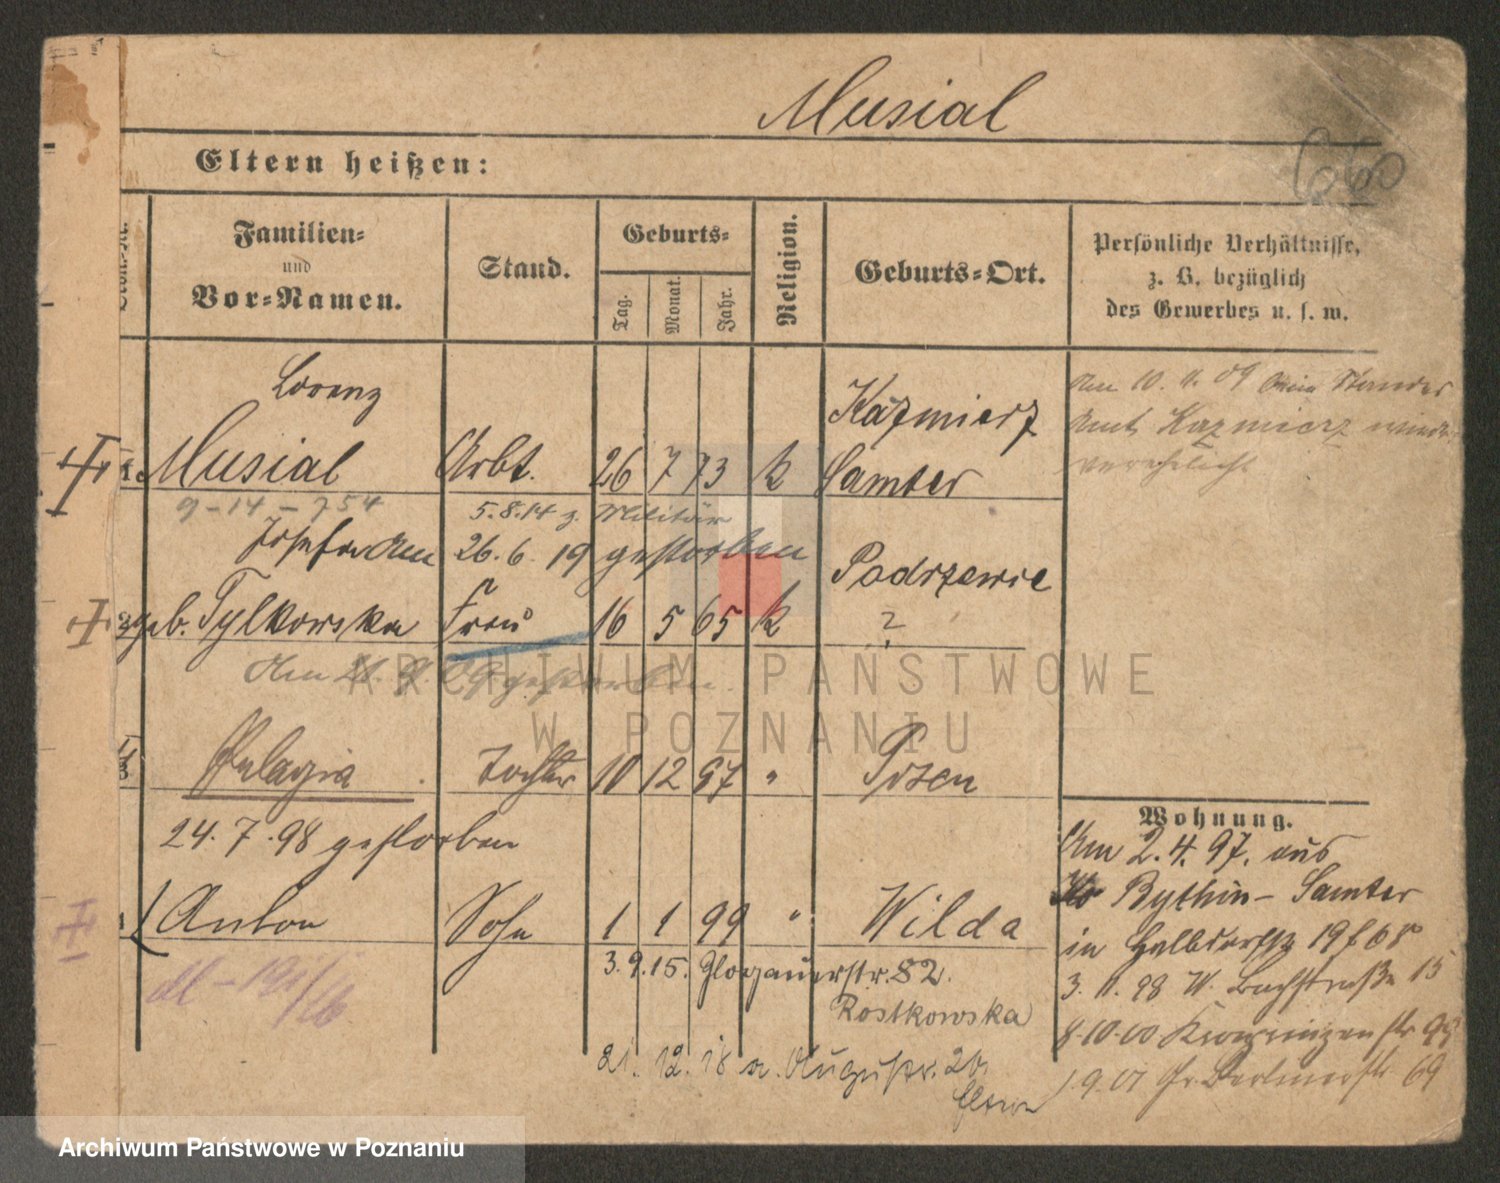 Musial
660
Eltern heißen:
Familien-
und
Vor-Namen.
Stand.
Geburts-
Tag.
Monat.
Jahr.
Religion.
Geburts-Ort.
Persönliche Verhältnisse,
z. B. bezüglich
des Gewerbes u. s. w.
Lorenz
Musial Arbt. 26 7 73 k Kazmierz
Samter
Am 10. 11. 09 Standes
Amt Kazmierz wieder
verehelicht
9-14-754
5.8.14 z. Militär
Josefa Am 26.6.19 gestorben
geb. Tylkowska Frau 16 5 65 k Podrzewie
?
Am 21. 9. 09 gestorben.
3 Pelagia Tochter 10 12 97 " Posen
24.7.98 gestorben
Anton Sohn 1 1 99 " Wilda
3.9.15. Glogauerstr. 82.
Rostkowska
21. 12. 18 a. Augustr. 20.
Wohnung.
Am 2.4.97. aus
Bythin - Samter
in Halbdorfstr 19
3. 11. 98 W. Bachstraße 15
8.10.00 Kronprinzenstr 99
1.9.01 Gr. Berlinerstr. 69
ARCHIWUM PAŃSTWOWE
W POZNANIU
Archiwum Państwowe w Poznaniu